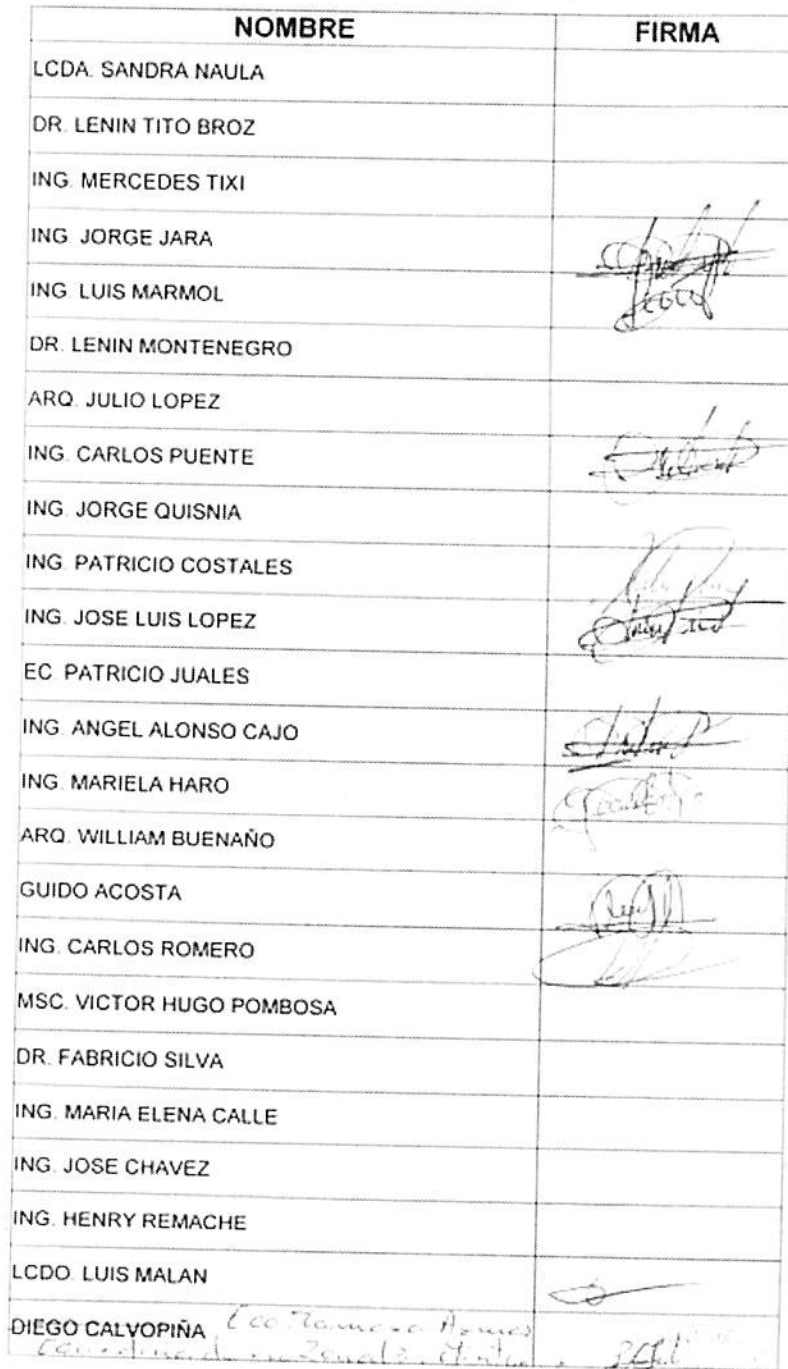 NOMBRE FIRMA
LCDA. SANDRA NAULA
DR. LENIN TITO BROZ
ING. MERCEDES TIXI
ING. JORGE JARA
ING. LUIS MARMOL
DR. LENIN MONTENEGRO
ARQ. JULIO LOPEZ
ING. CARLOS PUENTE
ING. JORGE QUISNIA
ING. PATRICIO COSTALES
ING. JOSE LUIS LOPEZ
EC. PATRICIO JUALES
ING. ANGEL ALONSO CAJO
ING. MARIELA HARO
ARQ. WILLIAM BUENAÑO
GUIDO ACOSTA
ING. CARLOS ROMERO
MSC. VICTOR HUGO POMBOSA
DR. FABRICIO SILVA
ING. MARIA ELENA CALLE
ING. JOSE CHAVEZ
ING. HENRY REMACHE
LCDO. LUIS MALAN
DIEGO CALVOPIÑA